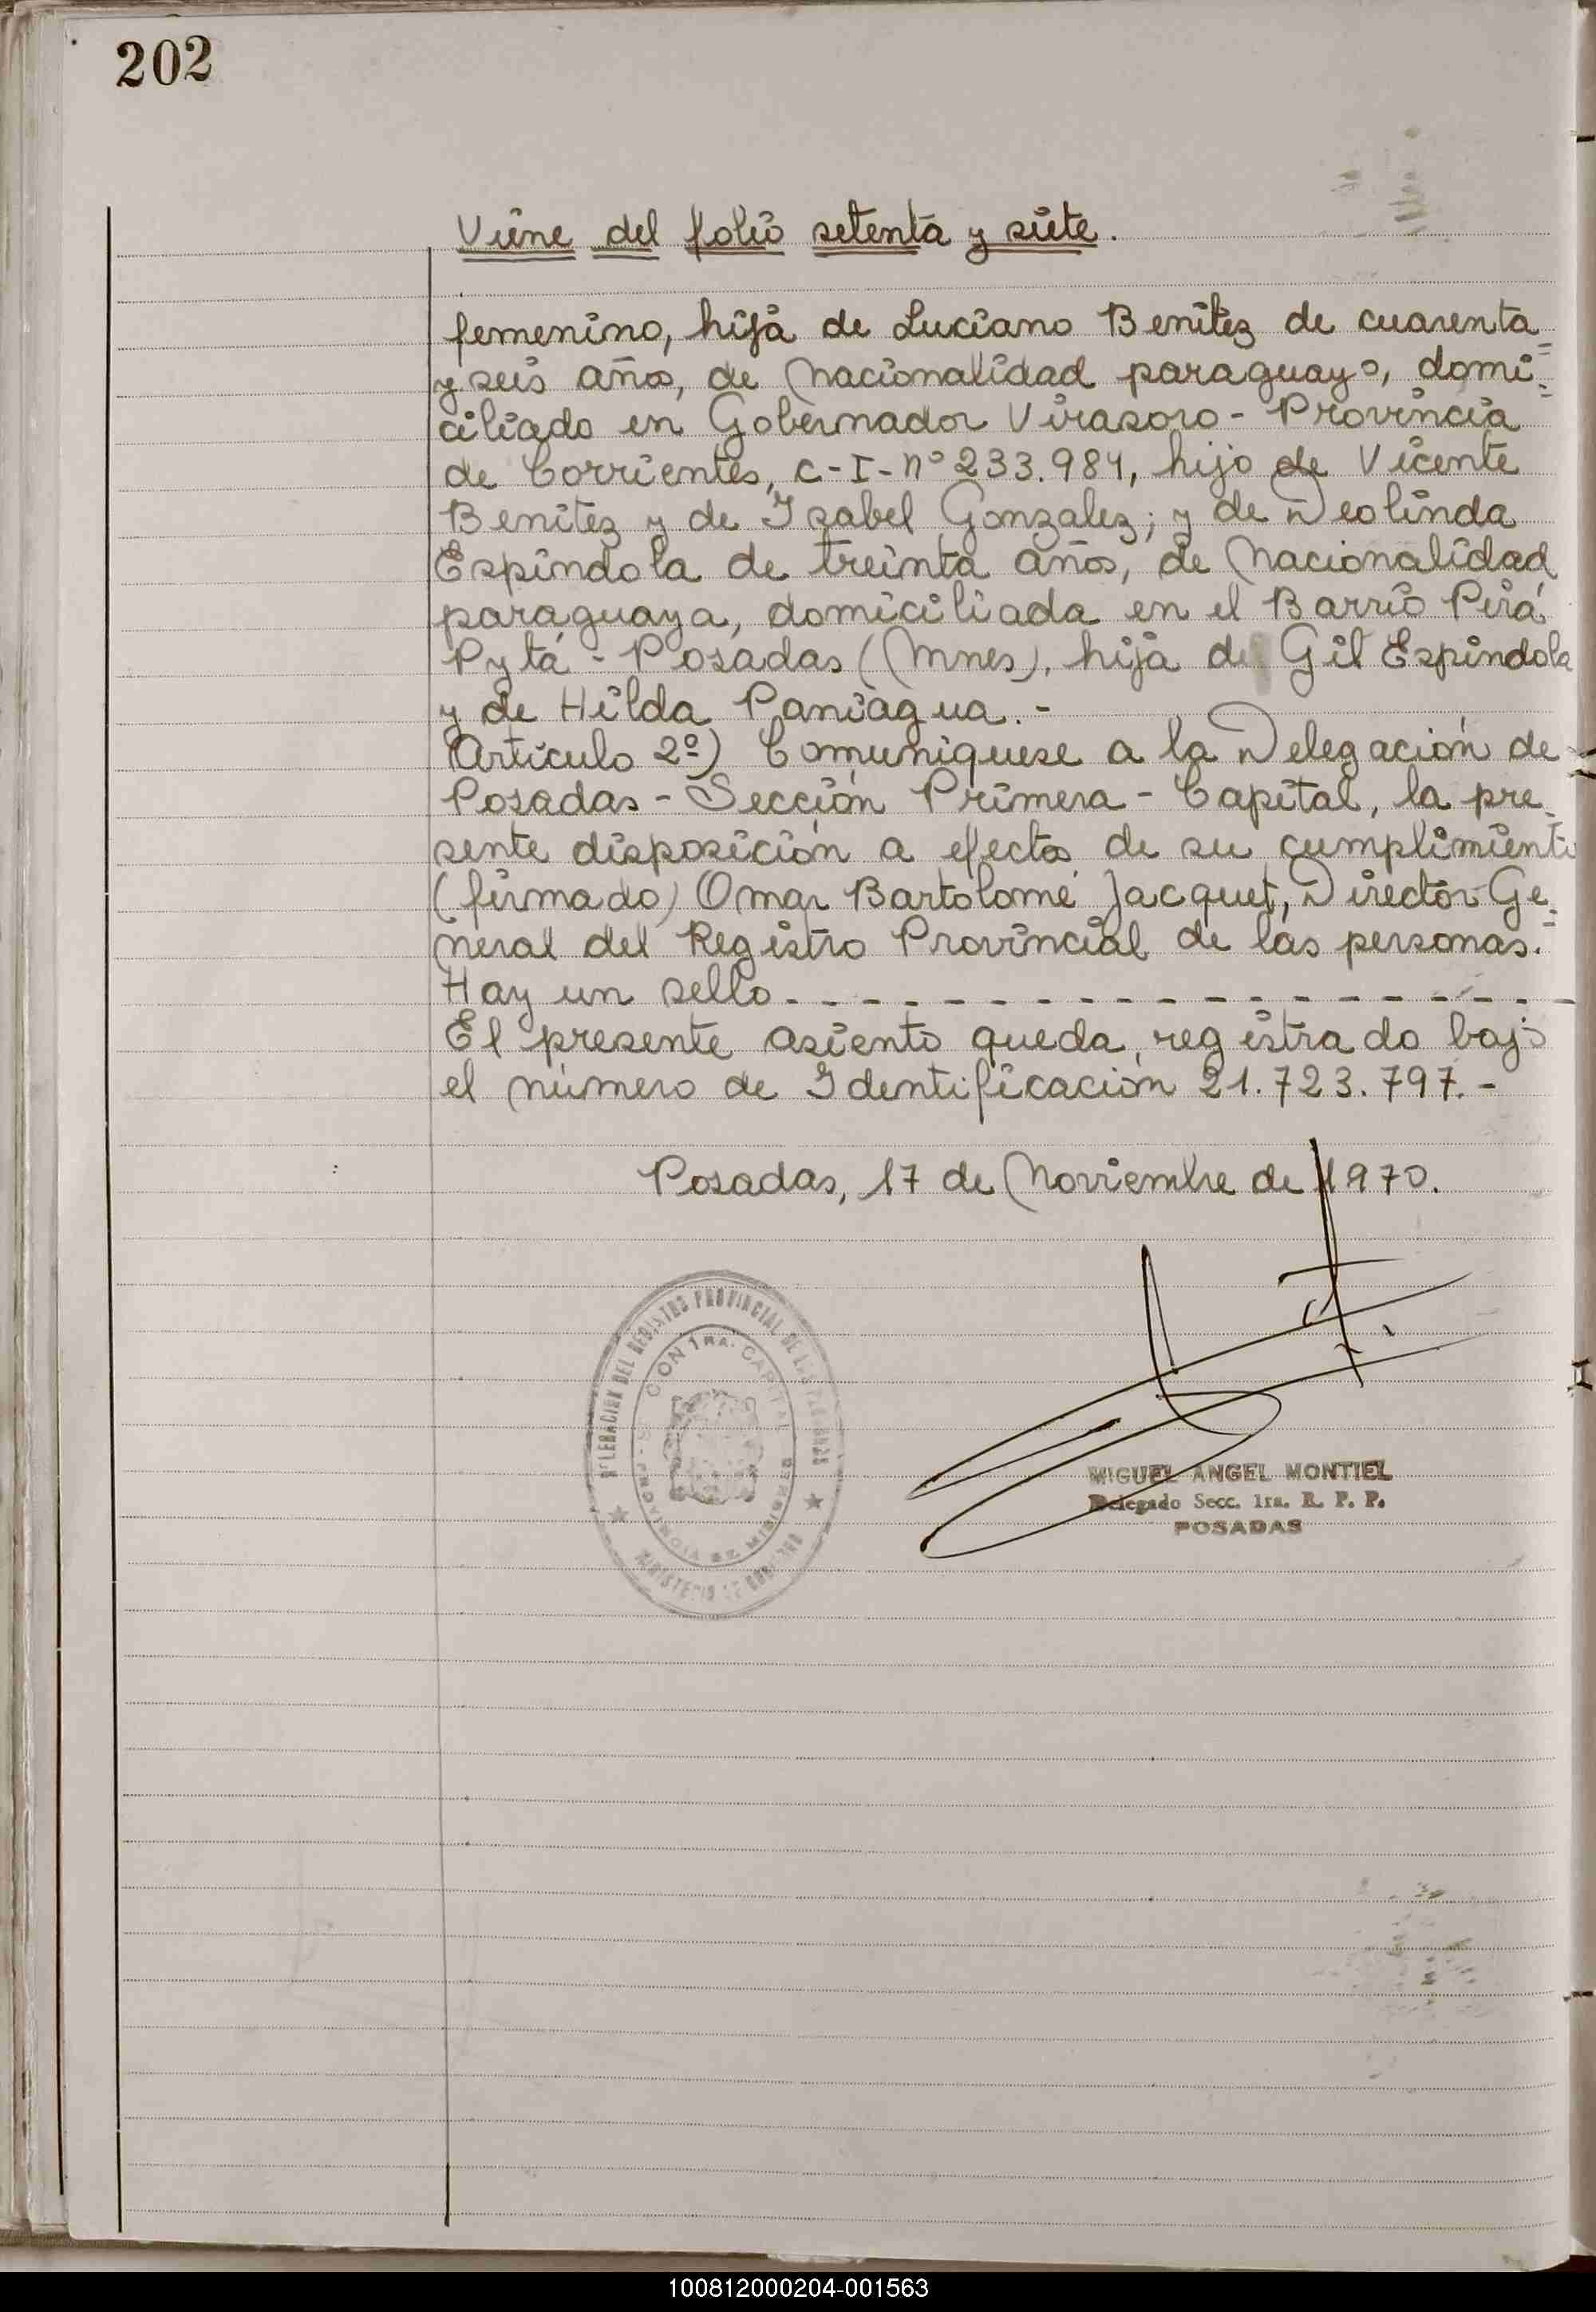 202
Viene del folio setenta y siete.
femenino, hija de Luciano Benitez de cuarenta
y seis años, de nacionalidad paraguayo, domi=
ciliado en Gobernador Virasoro - Provincia
de Corrientes, C-I-nº 233.984, hijo de Vicente
Benitez y de Isabel Gonzalez; y de Deolinda
Espindola de treinta años, de nacionalidad
paraguaya, domiciliada en el Barrio Pirá
Pytá - Posadas (Mnes), hija de Gil Espindola
y de Hilda Paniagua.-
Artículo 2º) Comuníquese a la Delegación de
Posadas - Sección Primera - Capital, la pre=
sente disposición a efectos de su cumplimiento
(firmado) Omar Bartolomé Jacquet, Director Ge=
neral del Registro Provincial de las personas.
Hay un sello
El presente asiento queda registrado bajo
el número de Identificación 21.723.797.-
Posadas, 17 de Noviembre de 1970.
DELEGACION DEL REGISTRO PROVINCIAL DE LAS PERSONAS
SECCION 1RA. CAPITAL
PROVINCIA DE MISIONES
MINISTERIO DE GOBIERNO
MIGUEL ANGEL MONTIEL
Delegado Secc. 1ra. R. P. P.
POSADAS
100812000204-001563